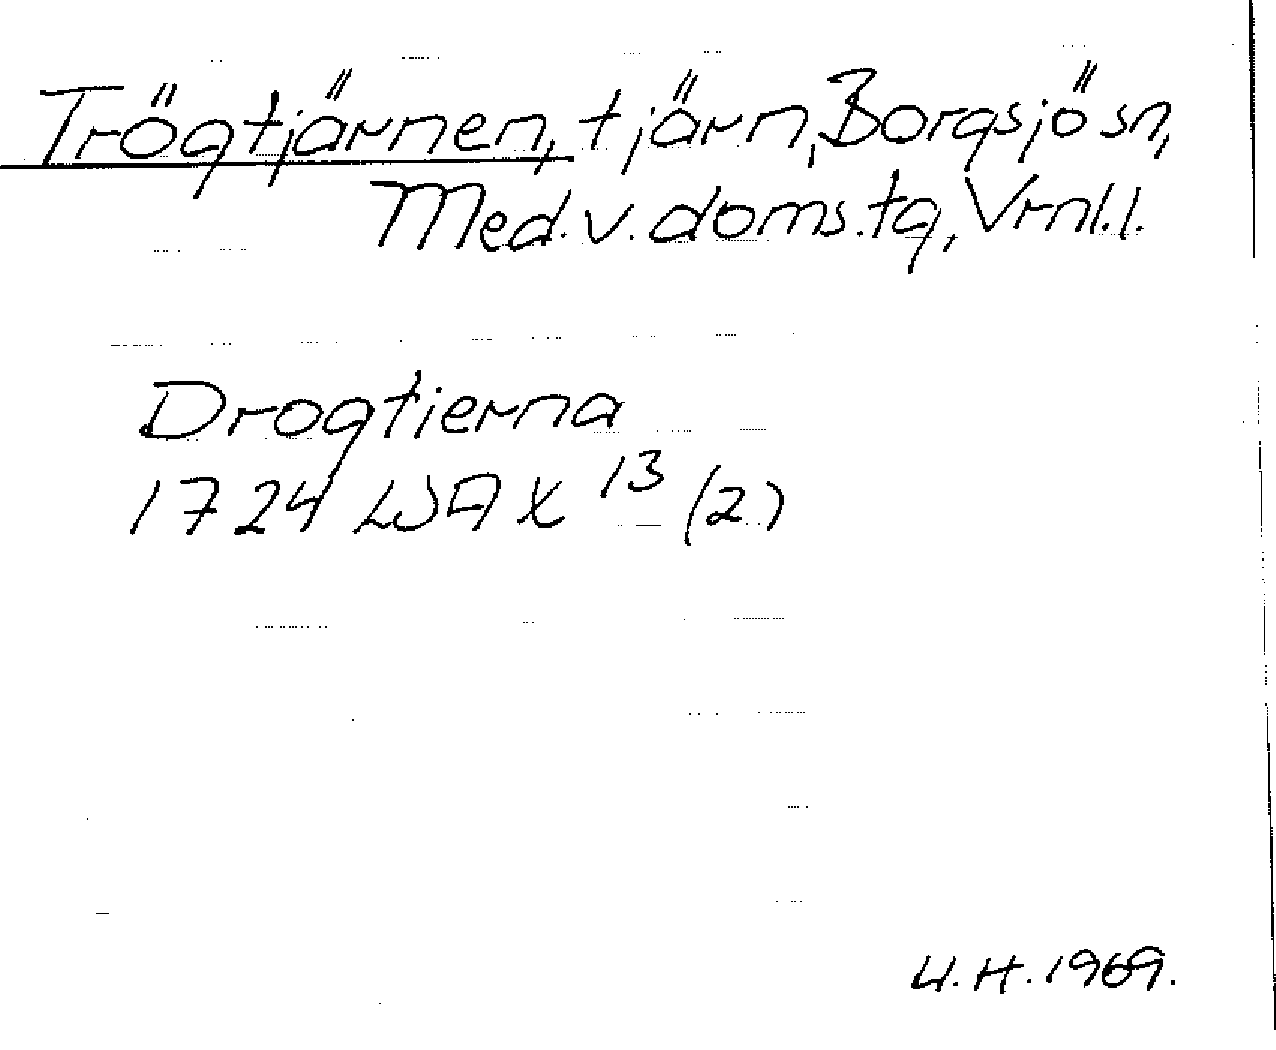 Trögtjärnen, tjärn, Borgsjö sn,
Med. v. doms. tg, Vrnl. l.
Drogtierna
1724 LSA X 13 (2)
U. H. 1969.